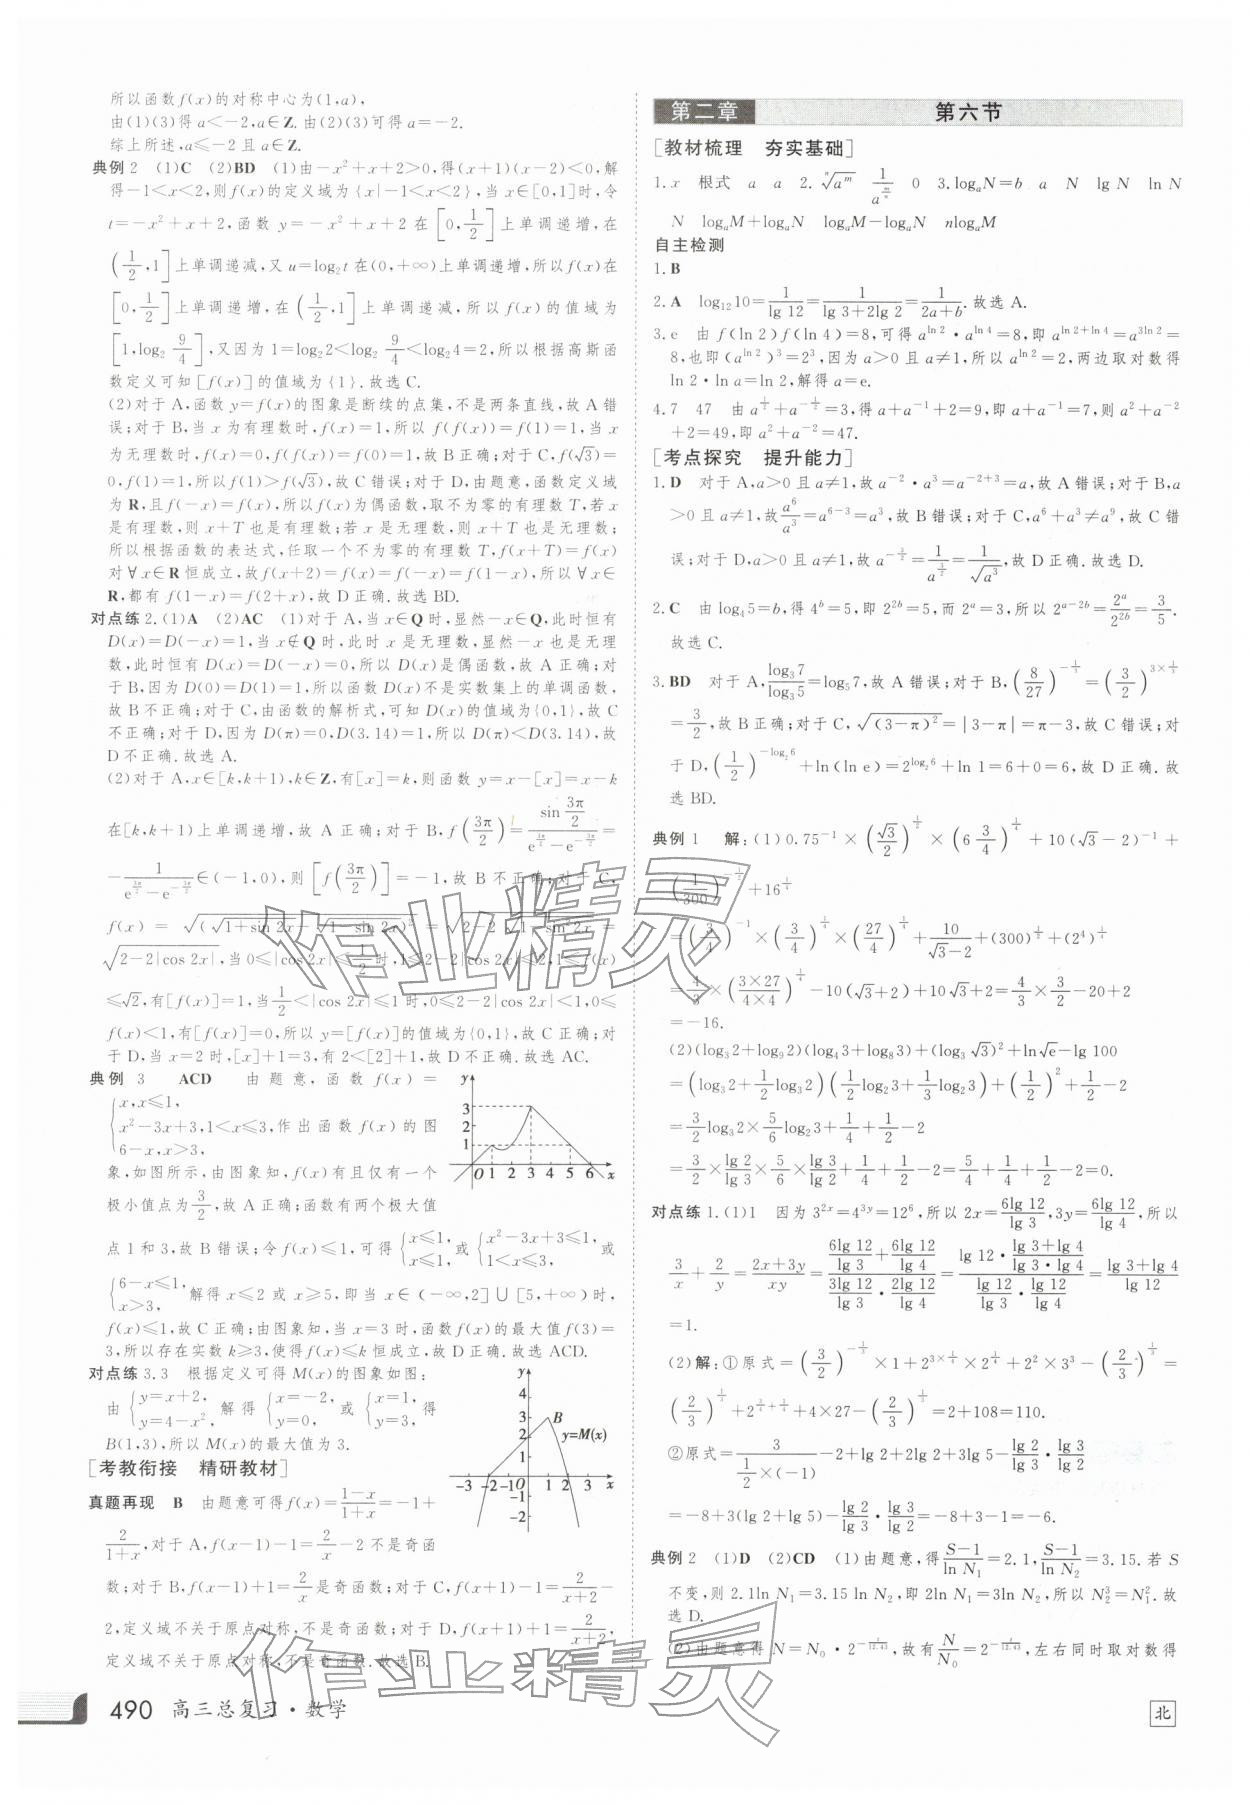 所以函数f(x)的对称中心为(1,a),
由(1)(3)得a<-2,a∈Z.由(2)(3)可得a=-2.
综上所述,a≤-2且a∈Z.
典例2 (1)C (2)BD (1)由-x²+x+2>0,得(x+1)(x-2)<0,解
得-1<x<2,则f(x)的定义域为{x|-1<x<2},当x∈[0,1]时,令
t=-x²+x+2,函数y=-x²+x+2在[0,1/2]上单调递增,在
(1/2,1]上单调递减,又u=log₂t在(0,+∞)上单调递增,所以f(x)在
[0,1/2]上单调递增,在(1/2,1]上单调递减,所以f(x)的值域为
[1,log₂ 9/4],又因为1=log₂2<log₂ 9/4<log₂4=2,所以根据高斯函
数定义可知[f(x)]的值域为{1}.故选C.
(2)对于A,函数y=f(x)的图象是断续的点集,不是两条直线,故A错
误;对于B,当x为有理数时,f(x)=1,所以f(f(x))=f(1)=1,当x
为无理数时,f(x)=0,f(f(x))=f(0)=1,故B正确;对于C,f(√3)=
0,f(1)=1,所以f(1)>f(√3),故C错误;对于D,由题意,函数定义域
为R,且f(-x)=f(x),所以f(x)为偶函数,取不为零的有理数T,若x
是有理数,则x+T也是有理数;若x是无理数,则x+T也是无理数;
所以根据函数的表达式,任取一个不为零的有理数T,f(x+T)=f(x)
对∀x∈R恒成立,故f(x+2)=f(x)=f(-x)=f(1-x),所以∀x∈
R,都有f(1-x)=f(2+x),故D正确.故选BD.
对点练2.(1)A (2)AC (1)对于A,当x∈Q时,显然-x∈Q,此时恒有
D(x)=D(-x)=1,当x∉Q时,此时x是无理数,显然-x也是无理
数,此时恒有D(x)=D(-x)=0,所以D(x)是偶函数,故A正确;对
于B,因为D(0)=D(1)=1,所以函数D(x)不是实数集上的单调函数,
故B不正确;对于C,由函数的解析式,可知D(x)的值域为{0,1},故C
不正确;对于D,因为D(π)=0,D(3.14)=1,所以D(π)<D(3.14),故
D不正确.故选A.
(2)对于A,x∈[k,k+1),k∈Z,有[x]=k,则函数y=x-[x]=x-k
在[k,k+1)上单调递增,故A正确;对于B,f(3π/2)=sin 3π/2/(e^(3π/2)-e^(-3π/2))=
-1/(e^(3π/2)-e^(-3π/2))∈(-1,0),则[f(3π/2)]=-1,故B不正确;对于C,
f(x)=√(√(1+sin 2x)-√(1-sin 2x))²=√(2-2√(1-sin²2x))=
√(2-2|cos 2x|),当0≤|cos 2x|≤1/2时,1≤2-2|cos 2x|≤2,1≤f(x)
≤√2,有[f(x)]=1,当1/2<|cos 2x|≤1时,0≤2-2|cos 2x|<1,0≤
f(x)<1,有[f(x)]=0,所以y=[f(x)]的值域为{0,1},故C正确;对
于D,当x=2时,[x]+1=3,有2<[2]+1,故D不正确.故选AC.
典例3 ACD 由题意,函数f(x)=
{x,x≤1,
x²-3x+3,1<x≤3,作出函数f(x)的图
6-x,x>3,
象,如图所示,由图象知,f(x)有且仅有一个
极小值点为3/2,故A正确;函数有两个极大值
y
3
2
1
O 1 2 3 4 5 6 x
点1和3,故B错误;令f(x)≤1,可得{x≤1, x≤1,或{x²-3x+3≤1, 1<x≤3,或
{6-x≤1, x>3,解得x≤2或x≥5,即当x∈(-∞,2]∪[5,+∞)时,
f(x)≤1,故C正确;由图象知,当x=3时,函数f(x)的最大值f(3)=
3,所以存在实数k≥3,使得f(x)≤k恒成立,故D正确.故选ACD.
对点练3.3 根据定义可得M(x)的图象如图:
由{y=x+2, y=4-x²,解得{x=-2, y=0,或{x=1, y=3,得
B(1,3),所以M(x)的最大值为3.
y
4
3
2
1
B
y=M(x)
-3 -2 -1 O 1 2 3 x
-1
-2
[考教衔接 精研教材]
真题再现 B 由题意可得f(x)=(1-x)/(1+x)=-1+
2/(1+x),对于A,f(x-1)-1=2/x-2不是奇函
数;对于B,f(x-1)+1=2/x是奇函数;对于C,f(x+1)-1=2/(x+2)-
2,定义域不关于原点对称,不是奇函数;对于D,f(x+1)+1=2/(x+2),
定义域不关于原点对称,不是奇函数.故选B.
490 高三总复习·数学
第二章 第六节
[教材梳理 夯实基础]
1.x 根式 a a 2.ⁿ√(a^m) 1/a^(m/n) 0 3.logₐN=b a N lg N ln N
N logₐM+logₐN logₐM-logₐN nlogₐM
自主检测
1.B
2.A log₁₂10=1/lg 12=1/(lg 3+2lg 2)=1/(2a+b).故选A.
3.e 由f(ln 2)f(ln 4)=8,可得a^(ln 2)·a^(ln 4)=8,即a^(ln 2+ln 4)=a^(3ln 2)=
8,也即(a^(ln 2))³=2³,因为a>0且a≠1,所以a^(ln 2)=2,两边取对数得
ln 2·ln a=ln 2,解得a=e.
4.7 47 由a^(1/2)+a^(-1/2)=3,得a+a⁻¹+2=9,即a+a⁻¹=7,则a²+a⁻²
+2=49,即a²+a⁻²=47.
[考点探究 提升能力]
1.D 对于A,a>0且a≠1,故a⁻²·a³=a⁻²⁺³=a,故A错误;对于B,a
>0且a≠1,故a⁶/a³=a⁶⁻³=a³,故B错误;对于C,a⁶+a³≠a⁹,故C错
误;对于D,a>0且a≠1,故a^(-3/2)=1/a^(3/2)=1/√(a³),故D正确.故选D.
2.C 由log₄5=b,得4^b=5,即2^(2b)=5,而2^a=3,所以2^(a-2b)=2^a/2^(2b)=3/5.
故选C.
3.BD 对于A,log₃7/log₃5=log₅7,故A错误;对于B,(8/27)^(-1/3)=(3/2)^(3×1/3)
=3/2,故B正确;对于C,√((3-π)²)=|3-π|=π-3,故C错误;对
于D,(1/2)^(-log₂6)+ln(ln e)=2^(log₂6)+ln 1=6+0=6,故D正确.故
选BD.
典例1 解:(1)0.75⁻¹×(√3/2)^(1/2)×(6 3/4)^(1/4)+10(√3-2)⁻¹+
(1/300)^(-1/2)+16^(1/4)
=(3/4)⁻¹×(3/4)^(1/4)×(27/4)^(1/4)+10/(√3-2)+(300)^(1/2)+(2⁴)^(1/4)
=4/3×((3×27)/(4×4))^(1/4)-10(√3+2)+10√3+2=4/3×3/2-20+2
=-16.
(2)(log₃2+log₉2)(log₄3+log₈3)+(log₃√3)²+ln√e-lg 100
=(log₃2+1/2log₃2)(1/2log₂3+1/3log₂3)+(1/2)²+1/2-2
=3/2log₃2×5/6log₂3+1/4+1/2-2
=3/2×lg 2/lg 3×5/6×lg 3/lg 2+1/4+1/2-2=5/4+1/4+1/2-2=0.
对点练1.(1)1 因为3^(2x)=4^(3y)=12⁶,所以2x=6lg 12/lg 3,3y=6lg 12/lg 4,所以
3/x+2/y=(2x+3y)/xy=(6lg 12/lg 3+6lg 12/lg 4)/(3lg 12/lg 3·2lg 12/lg 4)=(lg 12·(lg 3+lg 4)/(lg 3·lg 4))/(lg 12/lg 3·lg 12/lg 4)=(lg 3+lg 4)/lg 12
=1.
(2)解:①原式=(3/2)^(-1/3)×1+2^(3×1/4)×2^(1/4)+2²×3³-(2/3)^(1/3)=
(2/3)^(1/3)+2^(3/4+1/4)+4×27-(2/3)^(1/3)=2+108=110.
②原式=3/(1/2×(-1))-2+lg 2+2lg 2+3lg 5-lg 2/lg 3·lg 3/lg 2
=-8+3(lg 2+lg 5)-lg 2/lg 3·lg 3/lg 2=-8+3-1=-6.
典例2 (1)D (2)CD (1)由题意,得(S-1)/ln N₁=2.1,(S-1)/ln N₂=3.15.若S
不变,则2.1ln N₁=3.15ln N₂,即2ln N₁=3ln N₂,所以N₂³=N₁².故
选D.
(2)由题意得N=N₀·2^(-t/12.43),故有N/N₀=2^(-t/12.43),左右同时取对数得
北
作业精灵
作业精灵